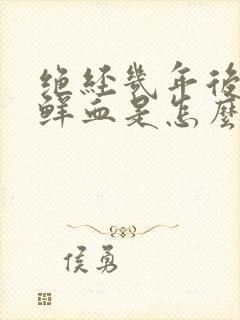 绝经几年后
鲜血是怎麽
侯勇